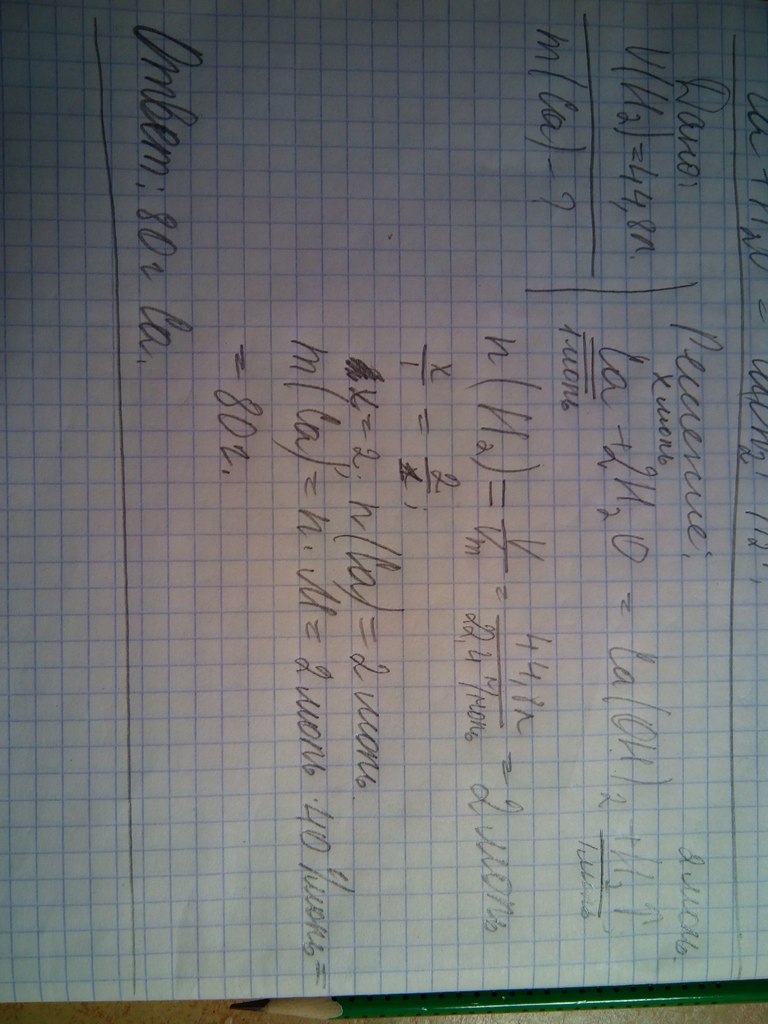 Дано:
V(H2)=44,8л.
m(Ca) - ?
Решение:
x моль 2 моль.
Ca + 2H2O = Ca(OH)2 + H2↑
1 моль 1 моль
n(H2) = V/Vm = 44,8л/22,4 л/моль = 2 моль
x/1 = 2/1;
x = 2; n(Ca) = 2 моль.
m(Ca) = n · M = 2 моль · 40 г/моль =
= 80 г.
Ответ: 80 г Ca.